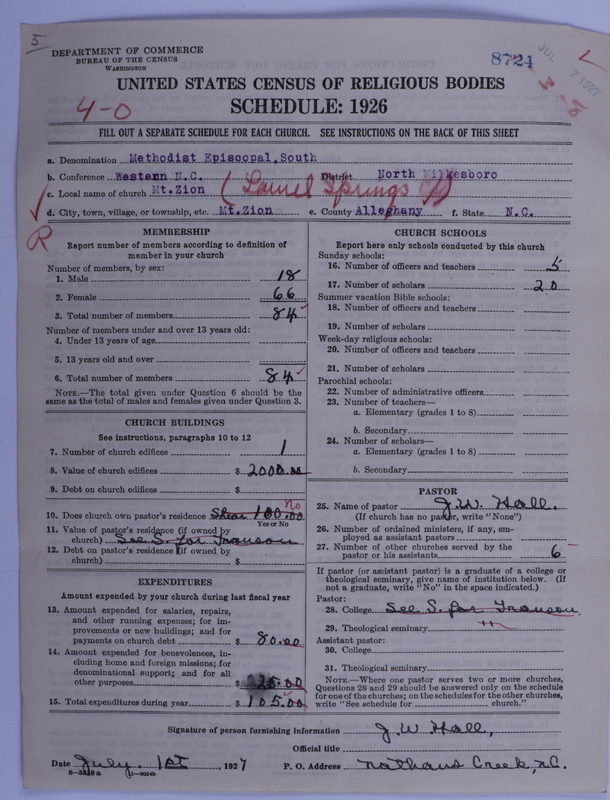 5
DEPARTMENT OF COMMERCE
BUREAU OF THE CENSUS
WASHINGTON
8724
JUL 2 1927
4-0
3-8
UNITED STATES CENSUS OF RELIGIOUS BODIES
SCHEDULE: 1926
FILL OUT A SEPARATE SCHEDULE FOR EACH CHURCH. SEE INSTRUCTIONS ON THE BACK OF THIS SHEET
a. Denomination Methodist Episcopal, South
b. Conference Western N.C. District North Wilkesboro
c. Local name of church Mt. Zion (Laurel Springs)
d. City, town, village, or township, etc. Mt. Zion e. County Alleghany f. State N.C.
R
MEMBERSHIP
Report number of members according to definition of member in your church
Number of members, by sex:
1. Male 18
2. Female 66
3. Total number of members 84
Number of members under and over 13 years old:
4. Under 13 years of age
5. 13 years old and over
6. Total number of members 84
NOTE.—The total given under Question 6 should be same as the total of males and females given under Question 3.
CHURCH BUILDINGS
See instructions, paragraphs 10 to 12
7. Number of church edifices 1
8. Value of church edifices $ 2000.00
9. Debt on church edifices $
10. Does church own pastor's residence Shear 100.00 no
Yes or No
11. Value of pastor's residence (if owned by
church) See S. for Transou
12. Debt on pastor's residence (if owned by
church) $
EXPENDITURES
Amount expended by your church during last fiscal year
13. Amount expended for salaries, repairs,
and other running expenses; for im-
provements or new buildings; and for
payments on church debt $ 80.00
14. Amount expended for benevolences, in-
cluding home and foreign missions; for
denominational support; and for all
other purposes $ 25.00
15. Total expenditures during year $ 105.00
CHURCH SCHOOLS
Report here only schools conducted by this church
Sunday schools:
16. Number of officers and teachers 5
17. Number of scholars 20
Summer vacation Bible schools:
18. Number of officers and teachers
19. Number of scholars
Week-day religious schools:
20. Number of officers and teachers
21. Number of scholars
Parochial schools:
22. Number of administrative officers
23. Number of teachers—
a. Elementary (grades 1 to 8)
b. Secondary
24. Number of scholars—
a. Elementary (grades 1 to 8)
b. Secondary
PASTOR
25. Name of pastor J. W. Hall.
(If church has no pastor, write "None")
26. Number of ordained ministers, if any, em-
ployed as assistant pastors
27. Number of other churches served by the
pastor or his assistants 6
If pastor (or assistant pastor) is a graduate of a college or
theological seminary, give name of institution below. (If
not a graduate, write "No" in the space indicated.)
Pastor:
28. College See S. for Transou
29. Theological seminary "
Assistant pastor:
30. College
31. Theological seminary
NOTE.—Where one pastor serves two or more churches,
Questions 28 and 29 should be answered only on the schedule
for one of the churches; on the schedules for the other churches,
write "See schedule for ........ church."
Signature of person furnishing information J. W. Hall,
Official title
Date July, 1st, 1927 P. O. Address Nathans Creek, N.C.